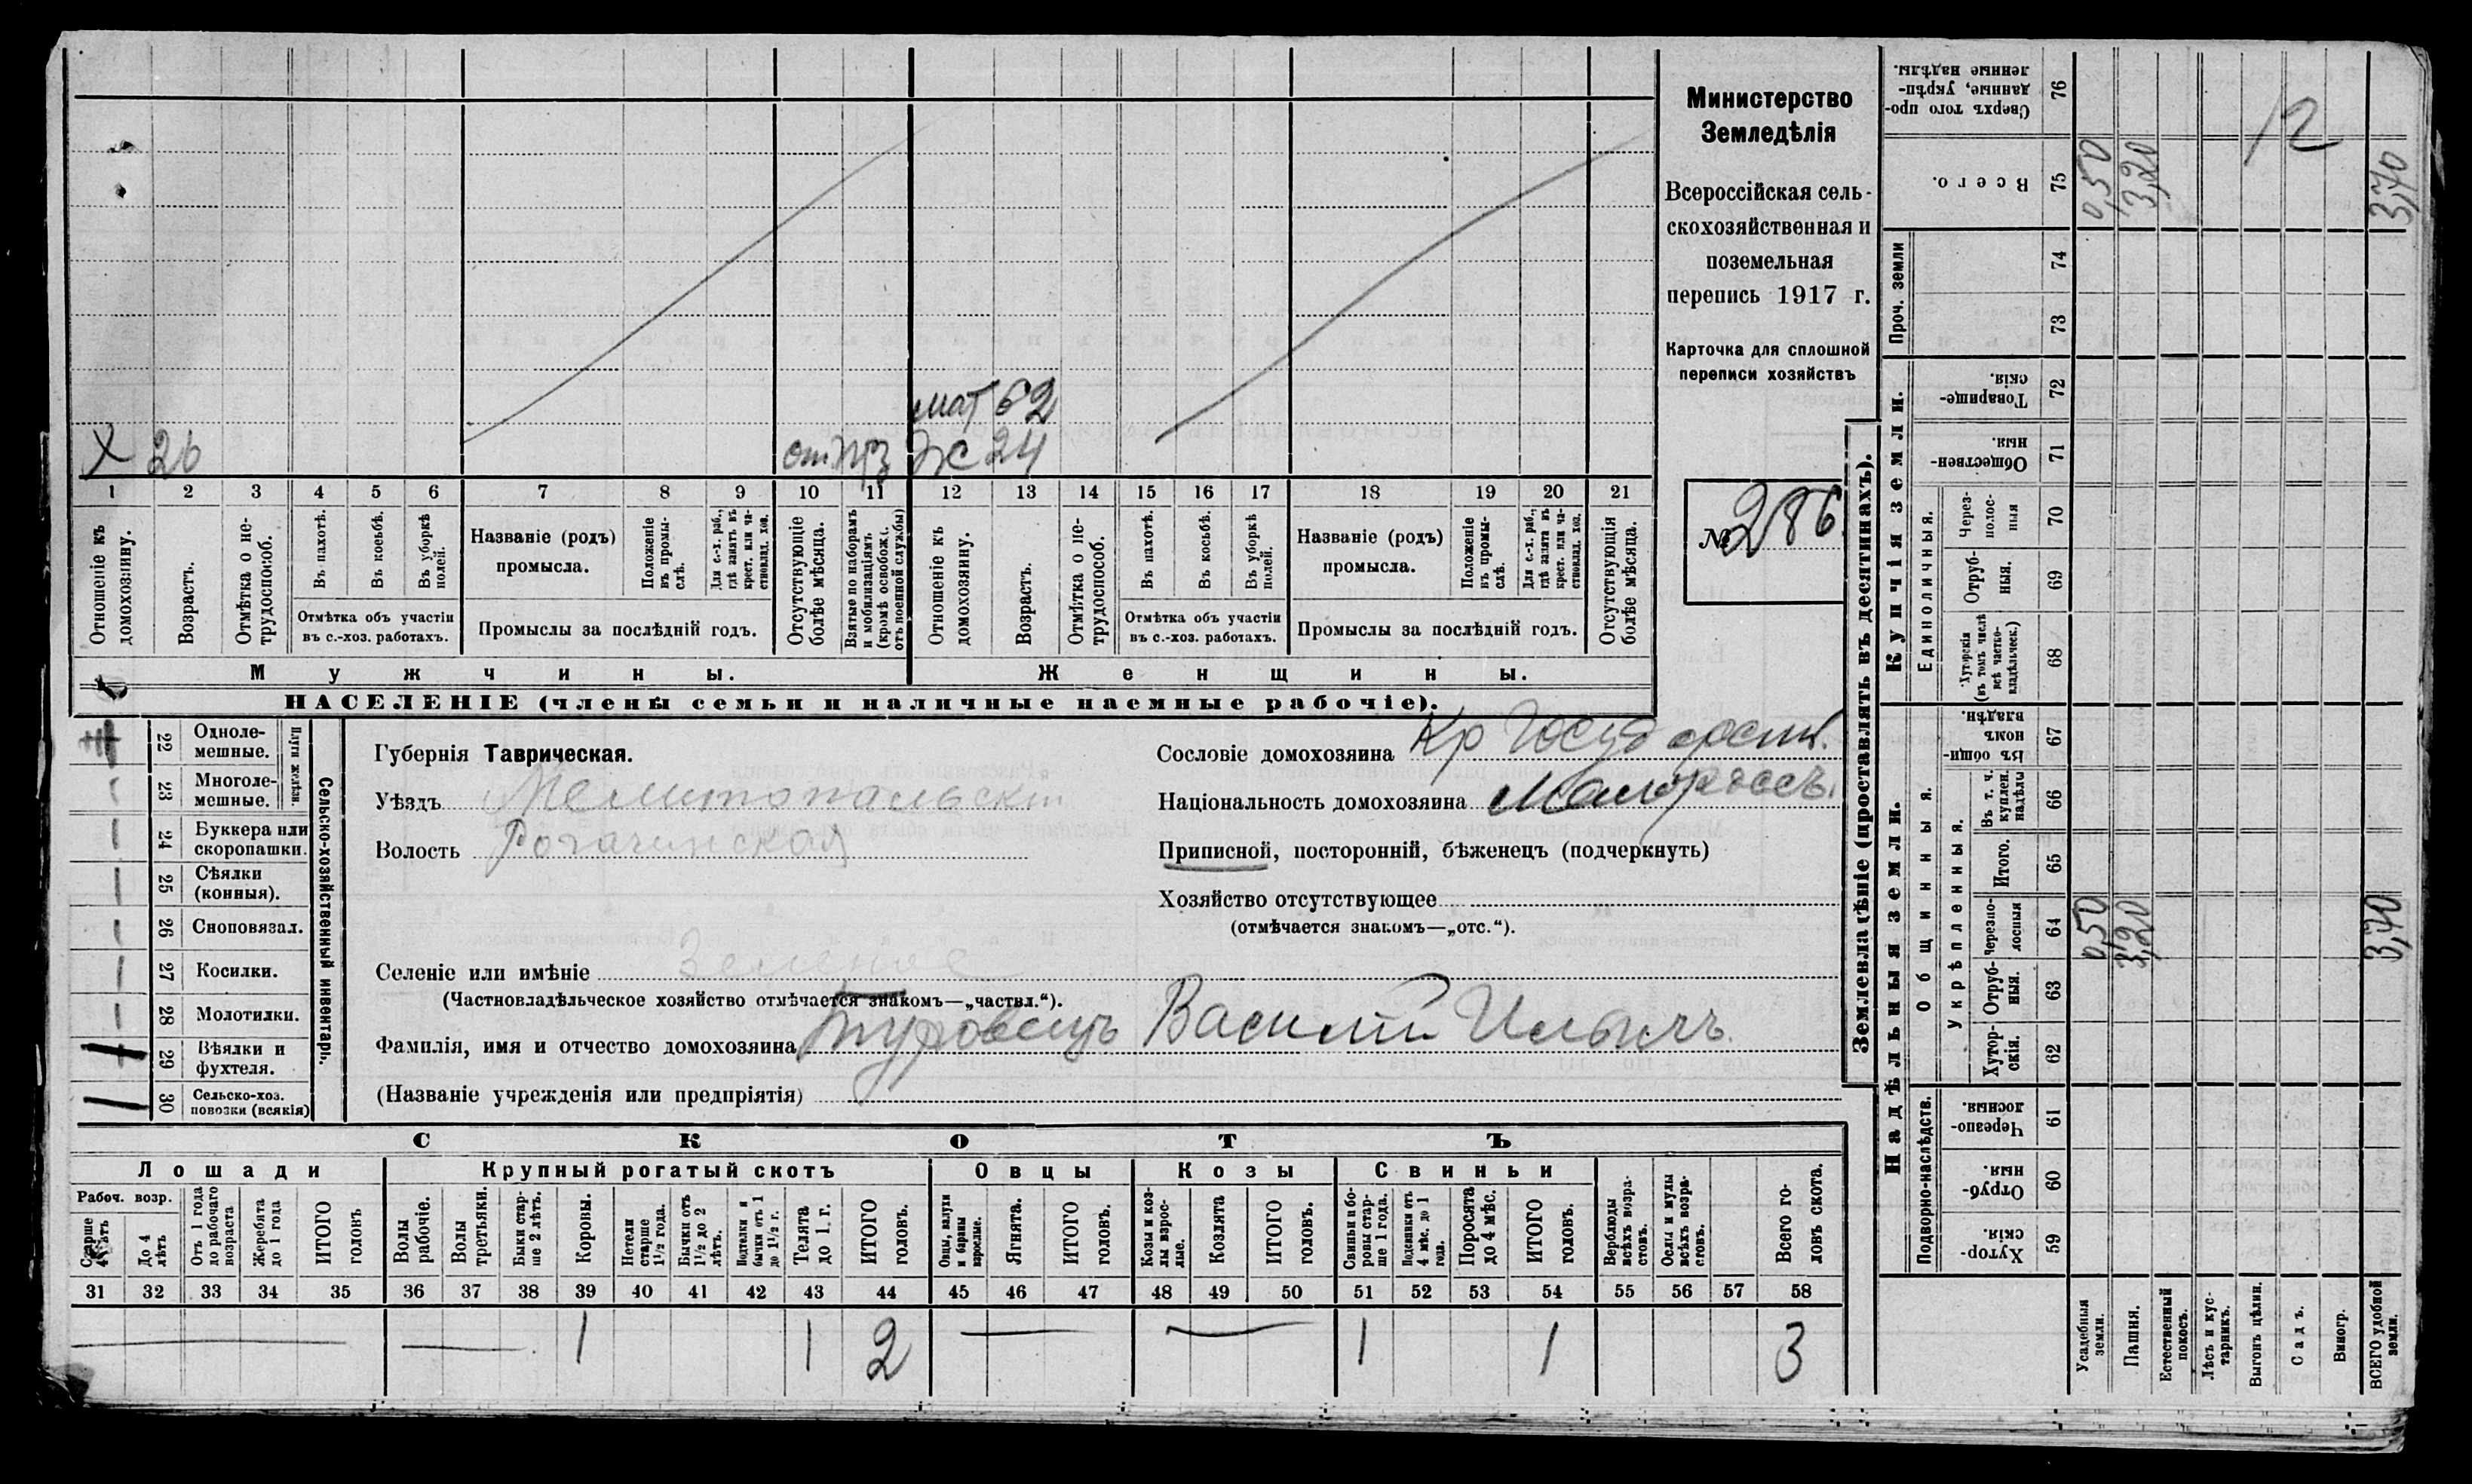 мат 62
X 26 отпр Ж 24
1 2 3 4 5 6 7 8 9 10 11 12 13 14 15 16 17 18 19 20 21
Отношеніе къ домохозяину.
Возрастъ.
Отмѣтка о не-трудоспособ.
Въ пахотѣ.
Въ косьбѣ.
Въ уборкѣ полей.
Отмѣтка объ участіи
въ с.-хоз. работахъ.
Названіе (родъ)
промысла.
Положеніе въ промы-слѣ.
Для с.-х. раб., гдѣ занятъ въ крест. или ча-стновлад. хоз.
Промыслы за послѣдній годъ.
Отсутствующіе болѣе мѣсяца.
Взятые по наборамъ и мобилизаціямъ (кромѣ освобожд. отъ военной службы)
Отношеніе къ домохозяину.
Возрастъ.
Отмѣтка о не-трудоспособ.
Въ пахотѣ.
Въ косьбѣ.
Въ уборкѣ полей.
Отмѣтка объ участіи
въ с.-хоз. работахъ.
Названіе (родъ)
промысла.
Положеніе въ промы-слѣ.
Для с.-х. раб., гдѣ занята въ крест. или ча-стновлад. хоз.
Промыслы за послѣдній годъ.
Отсутствующія болѣе мѣсяца.
Мужчины. Женщины.
НАСЕЛЕНІЕ (члены семьи и наличные наемные рабочіе).
Министерство
Земледѣлія
Всероссійская сель-
скохозяйственная и
поземельная
перепись 1917 г.
Карточка для сплошной
переписи хозяйствъ
№ 286
22 Одноле-мешные.
23 Многоле-мешные.
Плуги желѣзн.
24 Буккера или скоропашки.
25 Сѣялки (конныя).
26 Сноповязал.
27 Косилки.
28 Молотилки.
29 Вѣялки и фухтеля.
30 Сельско-хоз. повозки (всякія)
Сельско-хозяйственный инвентарь.
Губернія Таврическая.
Уѣздъ Мелитопольскій
Волость Рогачинская
Селеніе или имѣніе Зеленое
(Частновладѣльческое хозяйство отмѣчается знакомъ—„частвл.“).
Фамилія, имя и отчество домохозяина Туровецъ Василій Ильичъ
(Названіе учрежденія или предпріятія)
Сословіе домохозяина Кр Государств.
Національность домохозяина Малороссъ.
Приписной, посторонній, бѣженецъ (подчеркнуть)
Хозяйство отсутствующее
(отмѣчается знакомъ—„отс.“).
СКОТЪ
Лошади Крупный рогатый скотъ Овцы Козы Свиньи
Рабоч. возр.
Старше 4 лѣтъ
До 4 лѣтъ
Отъ 1 года до рабочаго возраста
Жеребята до 1 года
ИТОГО головъ
Волы рабочіе.
Волы третьяки.
Быки стар-ше 2 лѣтъ.
Коровы.
Нетели старше 1½ года.
Бычки отъ 1½ до 2 лѣтъ.
Подтелки и бычки отъ 1 до 1½ г.
Телята до 1 г.
ИТОГО головъ.
Овцы, валухи и бараны взрослые.
Ягнята.
ИТОГО головъ.
Козы и коз-лы взрос-лые.
Козлята
ИТОГО головъ.
Свиньи и бо-ровы стар-ше 1 года.
Подсвинки отъ 4 мѣс. до 1 года.
Поросята до 4 мѣс.
ИТОГО головъ.
Верблюды всѣхъ возра-стовъ.
Ослы и мулы всѣхъ возра-стовъ.
Всего го-ловъ скота.
31 32 33 34 35 36 37 38 39 40 41 42 43 44 45 46 47 48 49 50 51 52 53 54 55 56 57 58
1 1 2 1 1 3
Землевладѣніе (проставлять въ десятинахъ).
Сверхъ того про-данные, укрѣп-ленные надѣлы. 76
12
Всего. 75 0,50 3,20 3,70
Проч. земли 74
73
Купчія земли.
Товарище-скія. 72
Обществен-ныя. 71
Единоличныя.
Через-полос-ныя 70
Отруб-ныя. 69
Хуторскія (въ томъ числѣ всѣ частно-владѣльческ.) 68
Надѣльныя земли.
Общинныя.
Въ общин-номъ владѣн. 67
Укрѣпленныя.
Въ т. ч. куплен. надѣлы 66
Итого. 65
Черезпо-лосныя 64 0,50 3,20 3,70
Отруб-ныя. 63
Хутор-скія. 62
Подворно-наслѣдств.
Черезпо-лосныя. 61
Отруб-ныя. 60
Хутор-скія. 59
Усадебныя земли.
Пашня.
Естественный покосъ.
Лѣсъ и кус-тарникъ.
Выгонъ цѣлин.
Садъ.
Виногр.
ВСЕГО удобной земли.